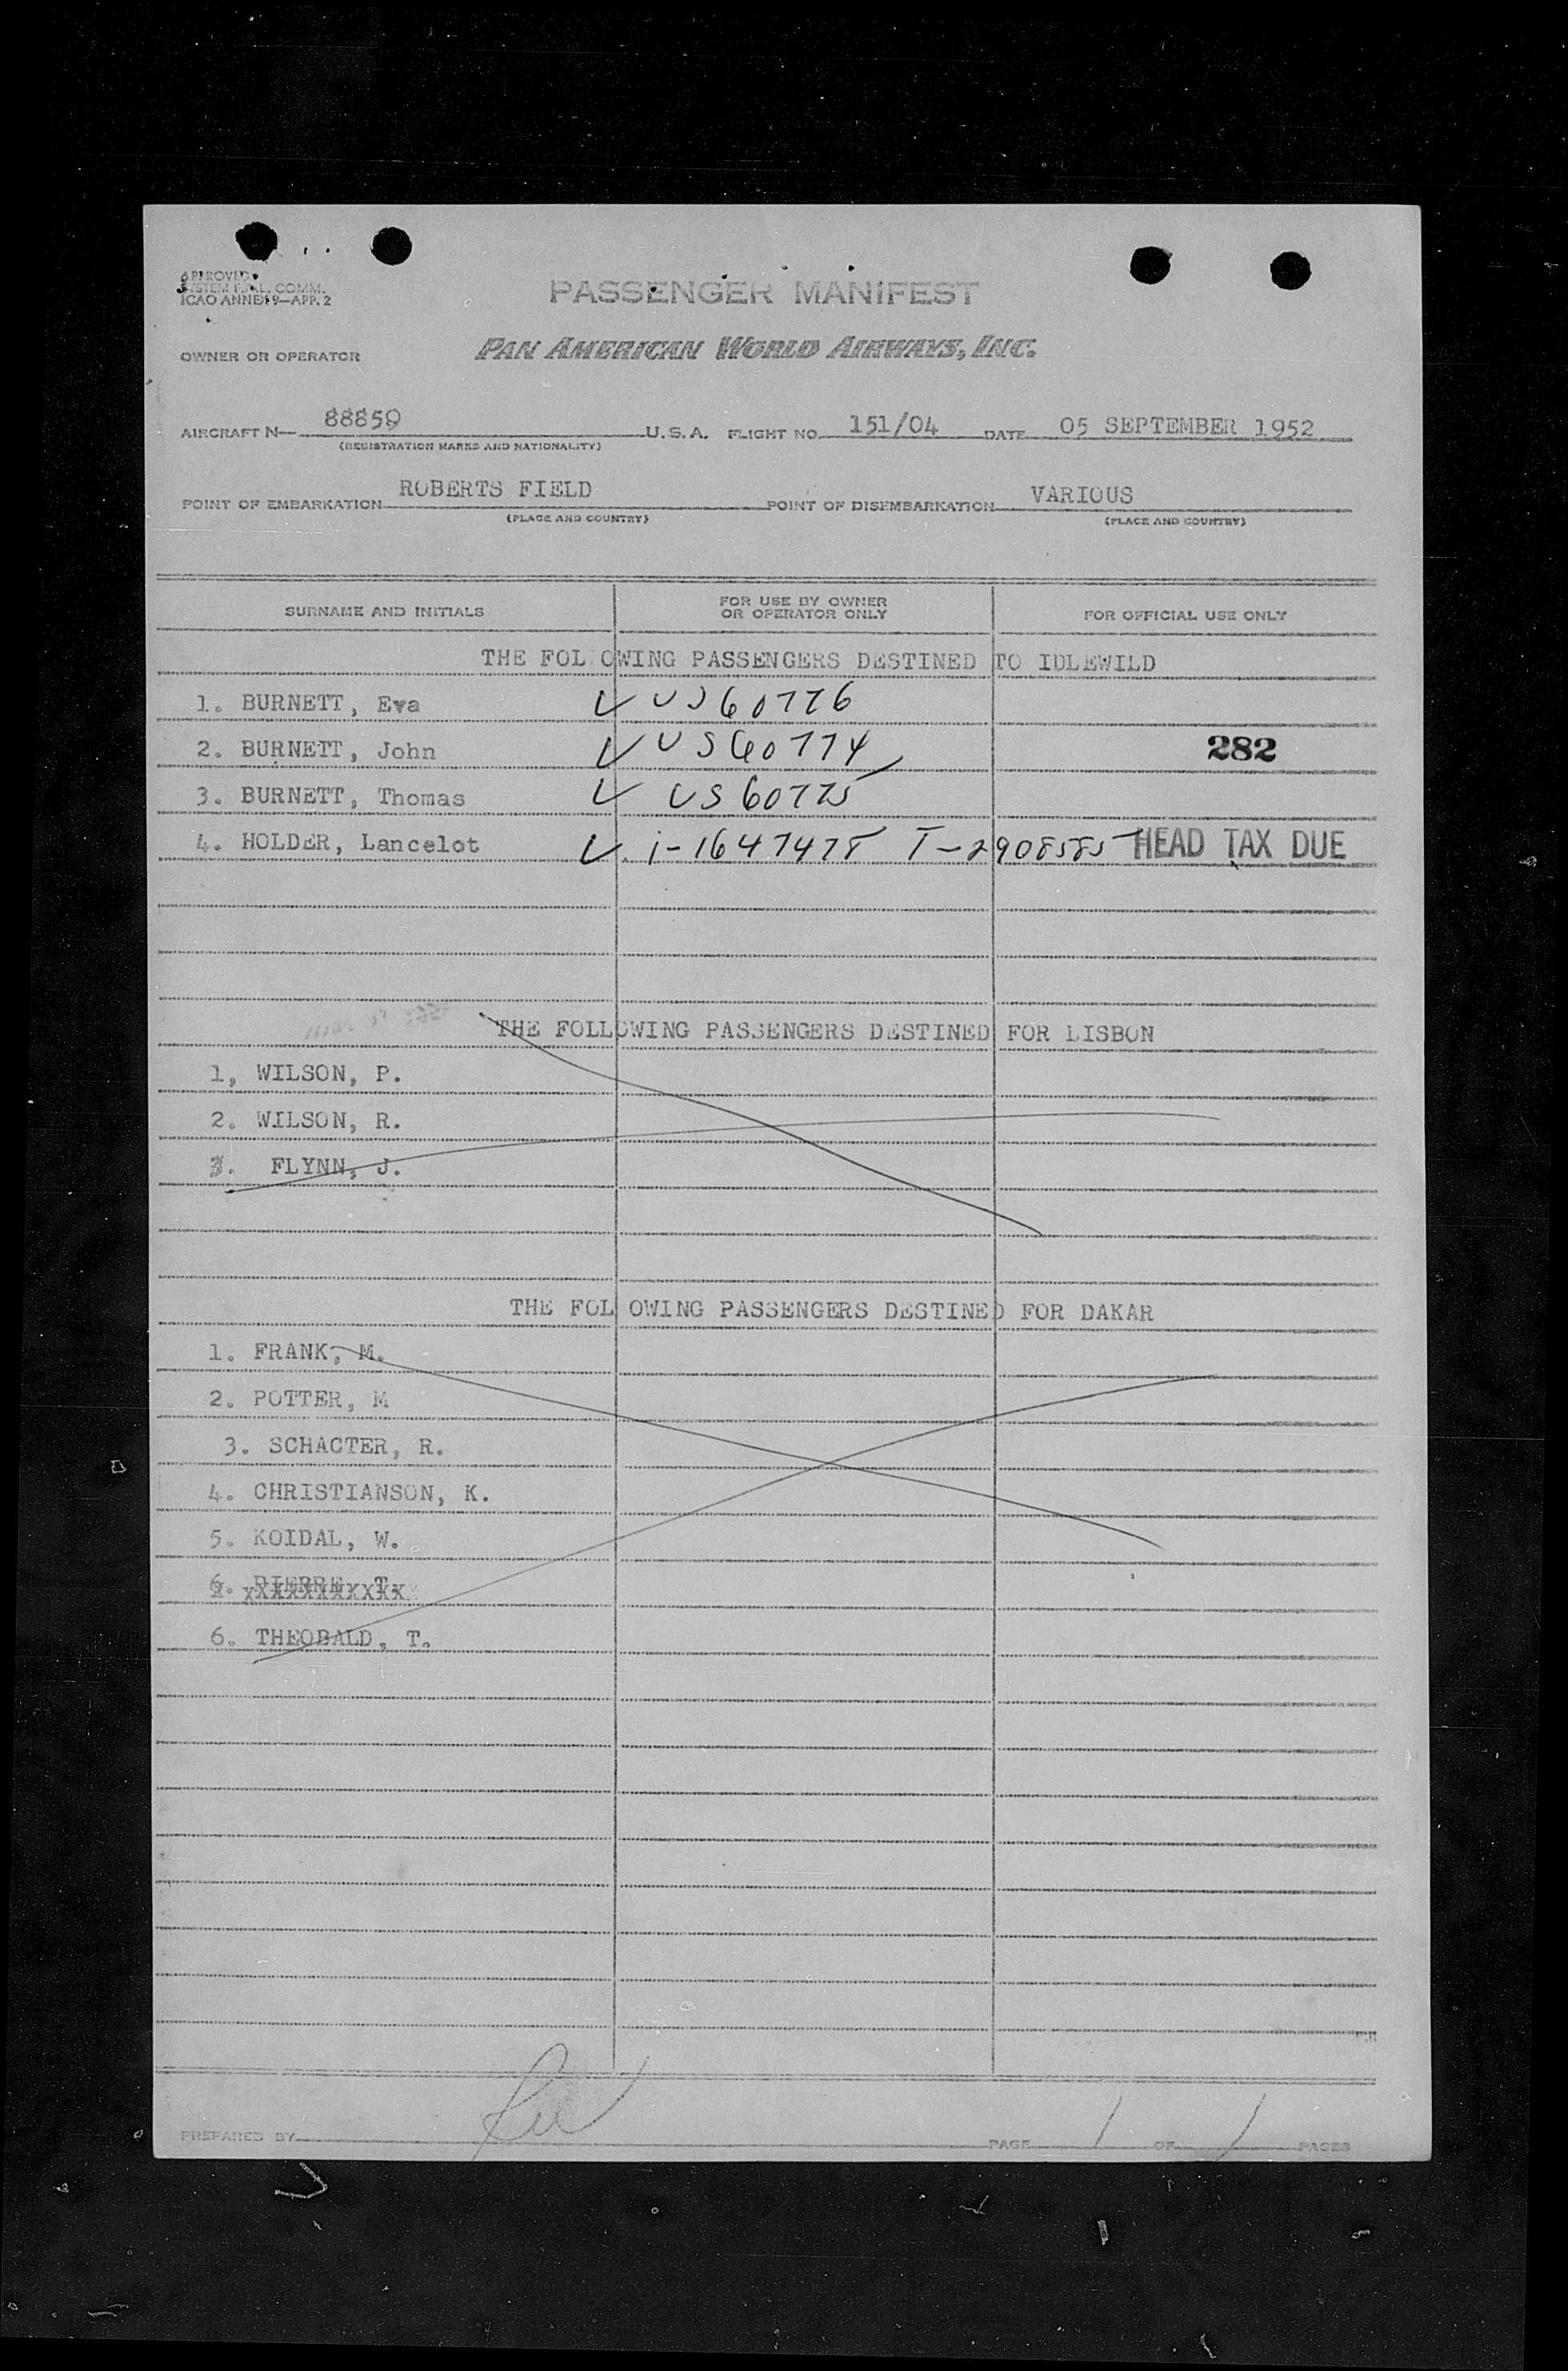 APPROVED
SYSTEM F.A.L. COMM.
ICAO ANNEX 9—APP. 2
PASSENGER MANIFEST
OWNER OR OPERATOR PAN AMERICAN WORLD AIRWAYS, INC.
AIRCRAFT N— 88859 U.S.A. FLIGHT NO. 151/04 DATE 05 SEPTEMBER 1952
(REGISTRATION MARKS AND NATIONALITY)
POINT OF EMBARKATION ROBERTS FIELD POINT OF DISEMBARKATION VARIOUS
(PLACE AND COUNTRY) (PLACE AND COUNTRY)
SURNAME AND INITIALS FOR USE BY OWNER OR OPERATOR ONLY FOR OFFICIAL USE ONLY
THE FOL OWING PASSENGERS DESTINED TO IDLEWILD
1. BURNETT, Eva US60776
2. BURNETT, John US60774 282
3. BURNETT, Thomas US60775
4. HOLDER, Lancelot i-1647478 T-2908585 HEAD TAX DUE
THE FOLLOWING PASSENGERS DESTINED FOR LISBON
1, WILSON, P.
2. WILSON, R.
3. FLYNN, J.
THE FOL OWING PASSENGERS DESTINED FOR DAKAR
1. FRANK, M.
2. POTTER, M
3. SCHACTER, R.
4. CHRISTIANSON, K.
5. KOIDAL, W.
6. PIERRE, T.
6. THEOBALD, T.
PREPARED BY PAGE 1 OF 1 PAGES